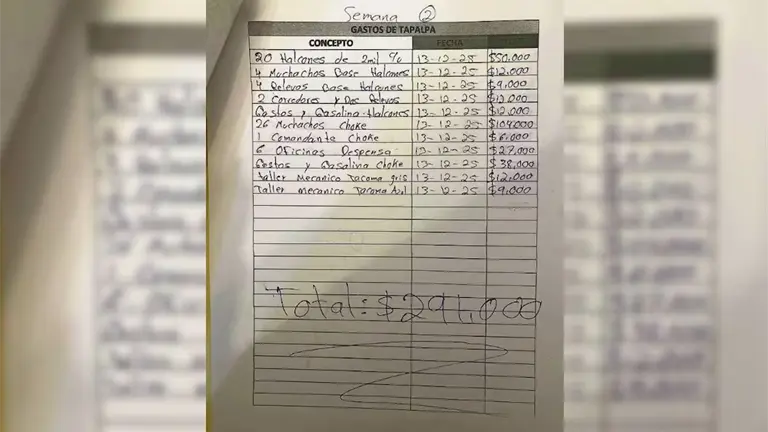 Semana 2
GASTOS DE TAPALPA
CONCEPTO FECHA
20 Halcones de 2mil % 13-12-25 $50,000
4 Muchachos Base Halcones 13-12-25 $12,000
4 Relevos Base Halcones 13-12-25 $9,000
2 Corredores y Dos Relevos 13-12-25 $12,000
Gastos y Gasolina Halcones 13-12-25 $12,000
26 Muchachos Choke 13-12-25 $104,000
1 Comandante Choke 13-12-25 $6,000
6 Oficinas Despensa 13-12-25 $27,000
Gastos y Gasolina Choke 13-12-25 $38,000
Taller Mecanico Tacoma gris 13-12-25 $12,000
Taller mecanico Tacoma Azul 13-12-25 $9,000
Total: $291,000